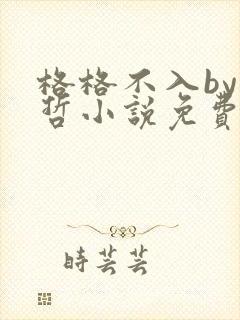 格格不入by
哲小説免費
時芸芸